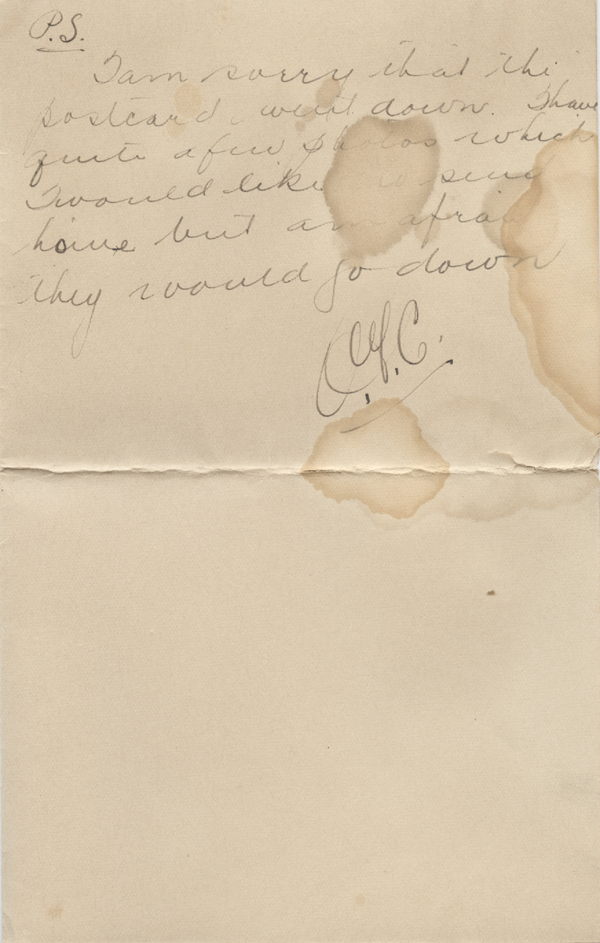 P.S.
I am sorry that the
postcard went down. I have
quite a few photos which
I would like to send
home but am afraid
they would go down